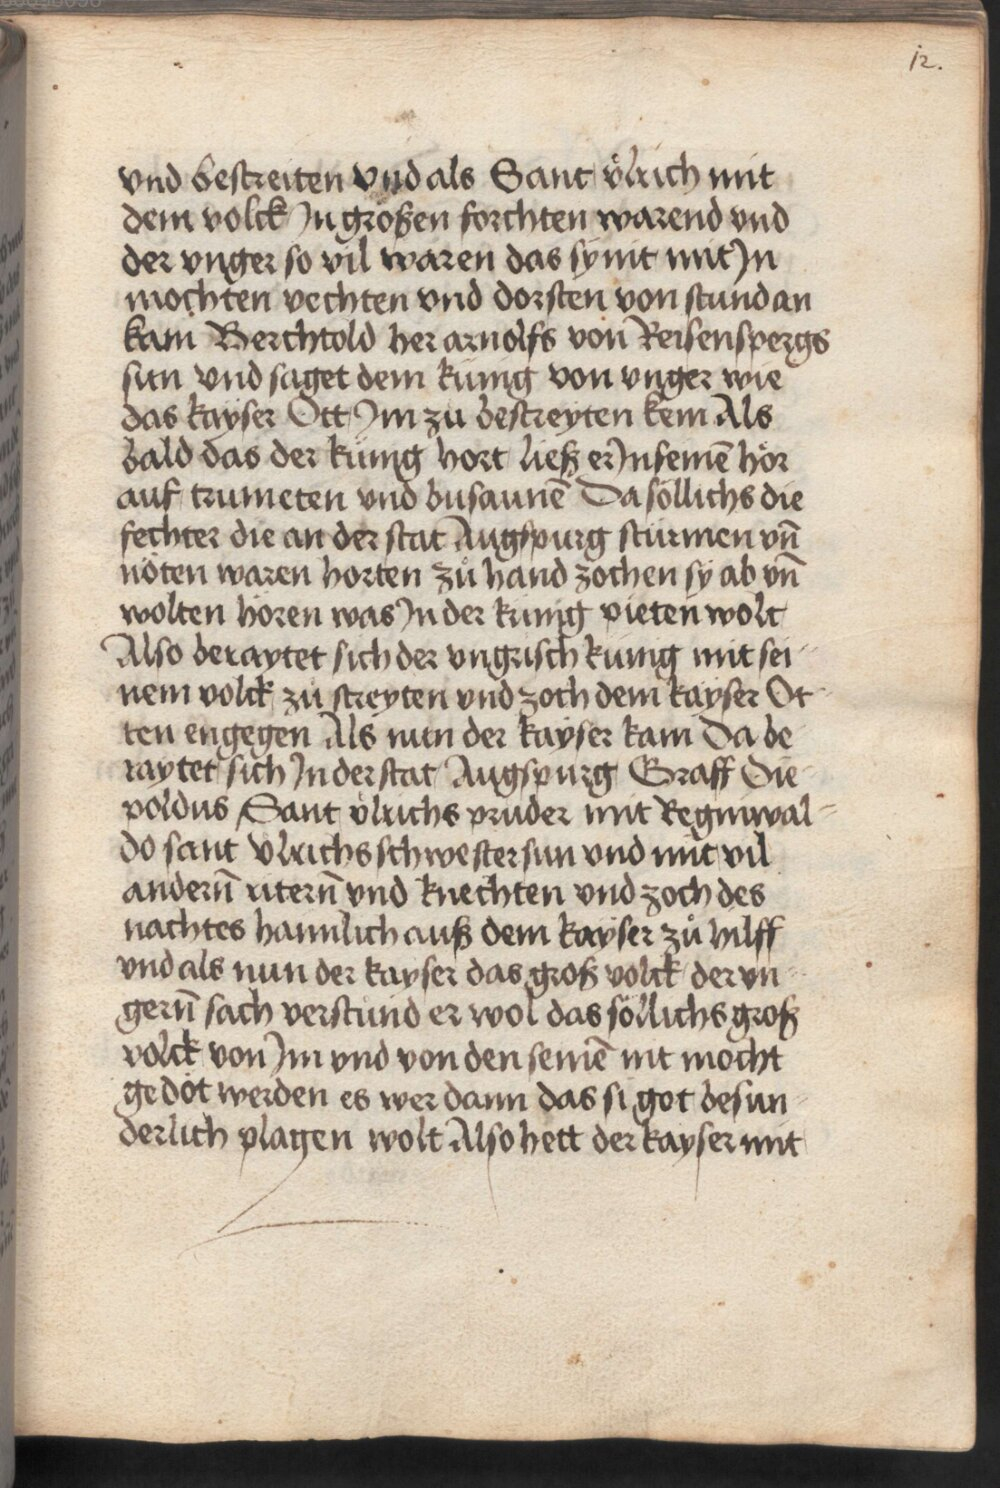 12.
vnd bestreiten vnd als Sant vͦlrich mit
dem volck In großen forchten warend vnd
der vnger so vil waren das sy nit mit In
mochten vechten vnd dorsten von stund an
kam Berchtold her arnolfs von Reisenspergs
sun vnd saget dem kúnig von vnger wie
das kayser Ott Im zu bestreyten kem Als
bald das der kúnig hort ließ er In seinē hör
auf trumeten vnd busaunē Da söllichs die
fechter die an der stat Augspurg sturmen vn̄
nöten waren horten zuͦ hand zochen sy ab vn̄
wolten hören was In der kúnig pieten wolt
Also beraytet sich der vngrisch kúnig mit sei-
nem volck zu streyten vnd zoch dem kayser Ot-
ten engegen Als nun der kayser kam Da be
raytet sich In der stat Augspurg Graff Die-
poldus Sant vͦlrichs pruder mit Reginwal-
do sant Vlrichs schwester sun vnd mit vil
andern̄ ritern̄ vnd knechten vnd zoch des
nachtes haimlich auß dem kayser zuͦ hilff
vnd als nun der kayser das groß volck der vn-
gern̄ sach verstund er wol das söllichs groß
volck von Im vnd von den seinē nit mocht
gedöt werden es wer dann das si got besun-
derlich plagen wolt Also hett der kayser mit